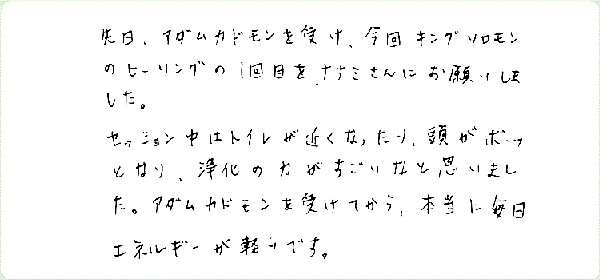 先日、アダムカドモンを受け、今回キングソロモン
のヒーリングの1回目をナナミさんにお願いしま
した。
セッション中はトイレが近くなったり、頭がボーッ
となり、浄化の力がすごいなと思いまし
た。アダムカドモンを受けてから、本当に毎日
エネルギーが軽いです。